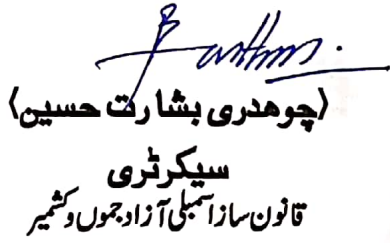 ﴿چوہدری بشارت حسین﴾
سیکرٹری
قانون ساز اسمبلی آزاد جموں و کشمیر